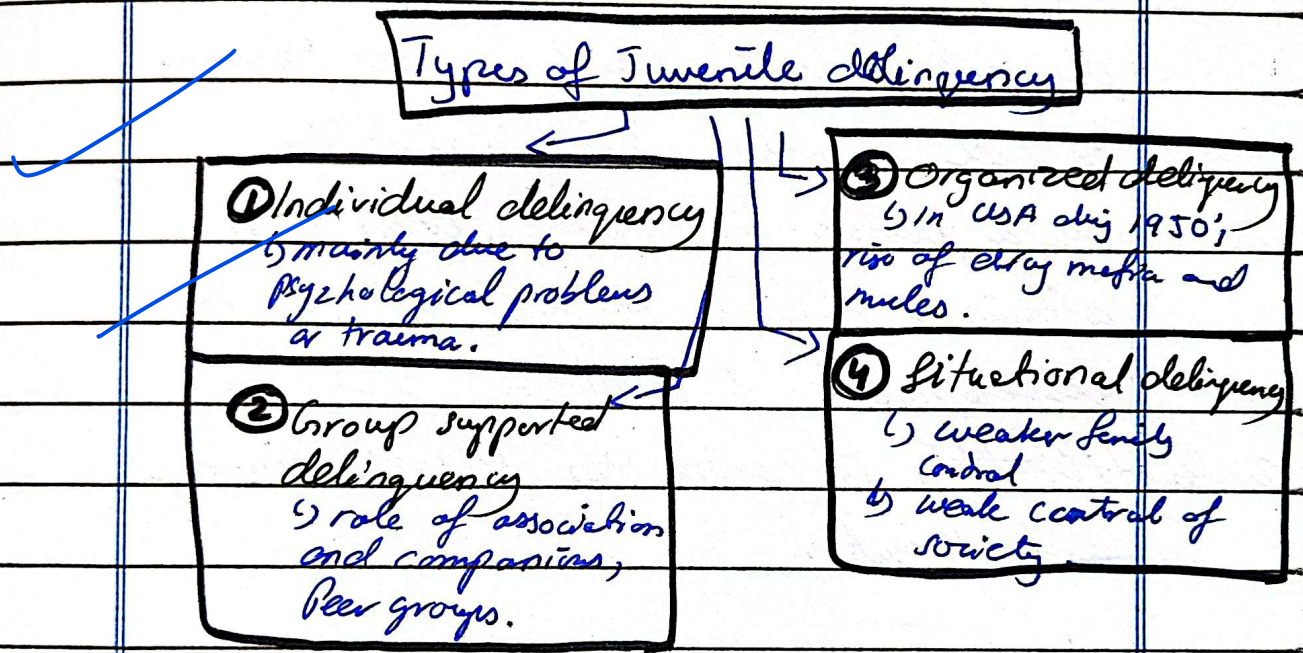 Types of Juvenile delinquency
① Individual delinquency
↳ mainly due to
psyzhological problems
or trauma.
② Group supported
delinquency
↳ role of association
and companions,
Peer groups.
③ Organized deliquency
↳ In USA 1950's
rise of drug mafia and
mules.
④ Situational delinquency
↳ weaker family
control
↳ weak control of
society.